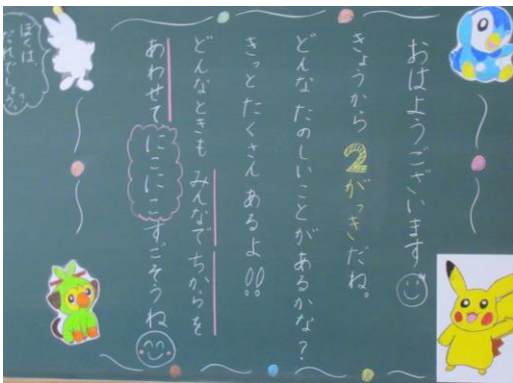 おはようございます
きょうから2がっきだね。
どんなたのしいことがあるかな？
きっとたくさんあるよ!!
どんなときもみんなでちからを
あわせてにこにこすごそうね
ぼくは、
だれでしょうか?